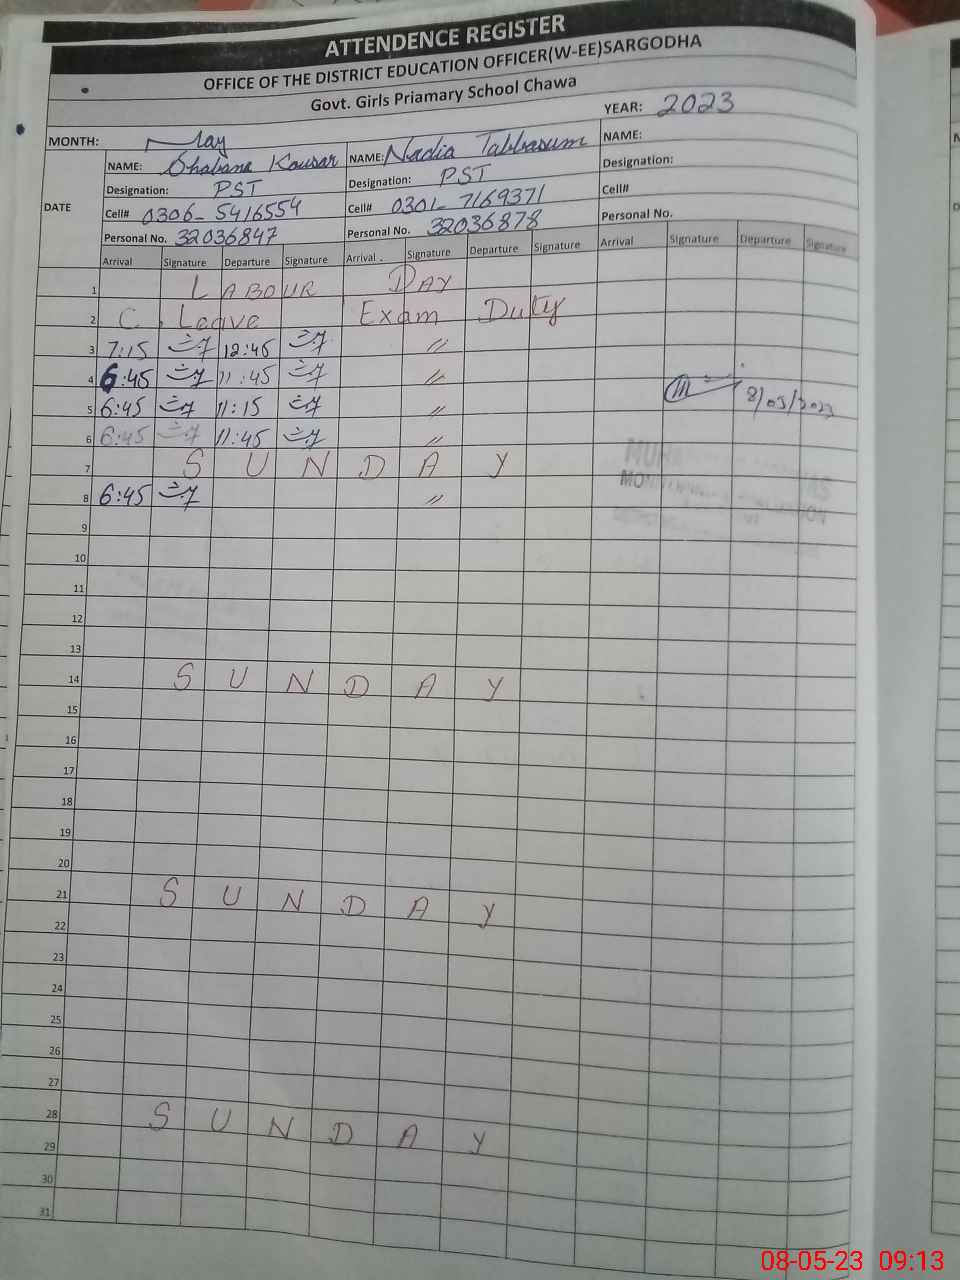 ATTENDENCE REGISTER
OFFICE OF THE DISTRICT EDUCATION OFFICER(W-EE)SARGODHA
Govt. Girls Priamary School Chawa
YEAR: 2023
MONTH: May
DATE
NAME: Shabana Kousar NAME: Nadia Tabbasum NAME:
Designation: PST Designation: PST Designation:
Cell# 0306-5416554 Cell# 0301-7169371 Cell#
Personal No. 32036847 Personal No. 32036878 Personal No.
Arrival Signature Departure Signature Arrival Signature Departure Signature Arrival Signature Departure Signature
1 LABOUR DAY
2 C. Leave Exam Duty
3 7:15 12:45 〃
4 6:45 11:45 〃
5 6:45 11:15 〃 8/05/2023
6 6:45 11:45 〃
7 SUNDAY
8 6:45 〃
9
10
11
12
13
14 SUNDAY
15
16
17
18
19
20
21 SUNDAY
22
23
24
25
26
27
28 SUNDAY
29
30
31
08-05-23 09:13